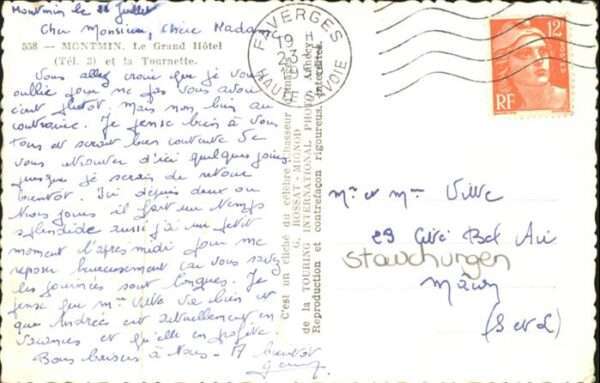 Montmin le 28 Juillet
Cher Monsieur, Chère Madame
558 — MONTMIN. Le Grand Hôtel
(Tél. 3) et la Tournette.
Vous allez croire que je vous
oublie pour ne pas vous avoir
écrit plutôt, mais non bien au
contraire. Je pense bien à vous
tous et serait bien contente de
vous retrouver d'ici quelques jours,
puisque je serais de retour
bientôt. Ici depuis deux ou
trois jours il fait un temps
splendide aussi j'ai un petit
moment l'après midi pour me
reposer heureusement car vous savez
les journées sont longues. Je
pense que Mme Ville va bien et
que Andrée est actuellement en
vacances et qu'elle en profite.
Bons baisers à tous - A bientôt
C'est un cliché du célèbre chasseur d'images
G. ROSSAT-MIGNOD
de la TOURING INTERNATIONAL PHOTO, Annecy
Reproduction et contrefaçon rigoureus. interdites.
FAVERGES
HAUTE SAVOIE
12F
RF
Mr et Mme Ville
29 Cité Bel Air
Stauchungen
Mâcon
(S et L)